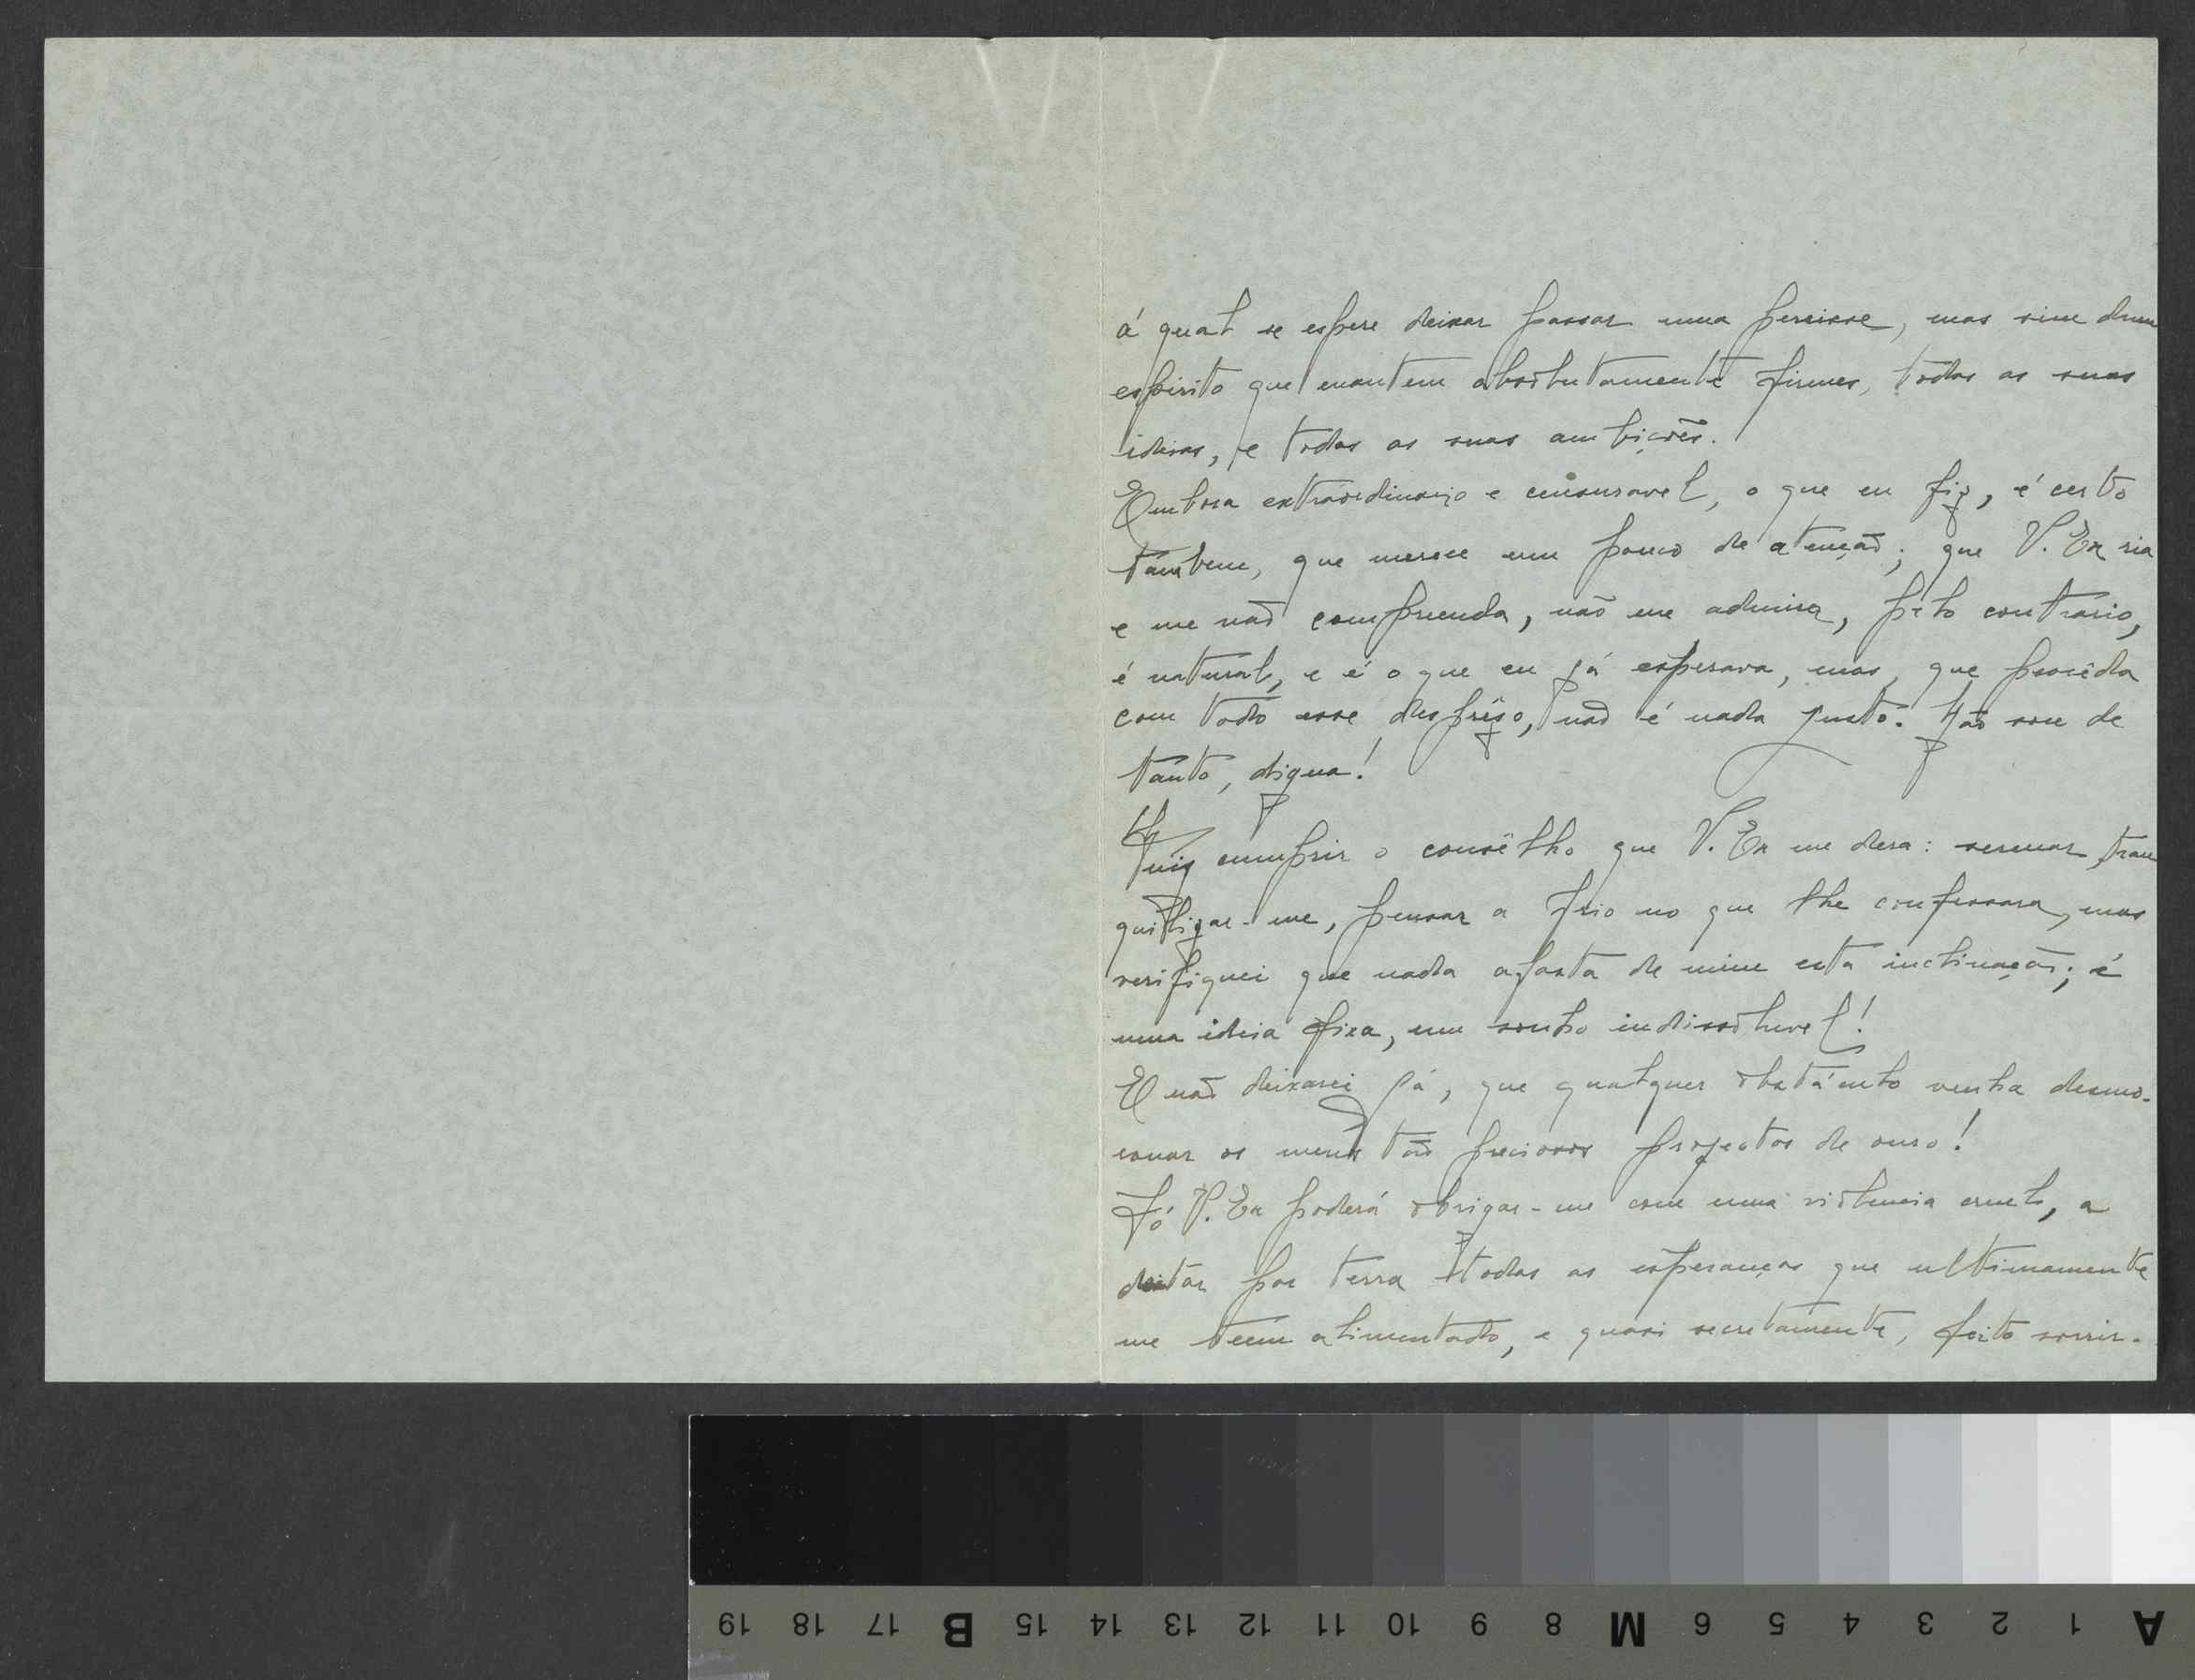 á qual se espere deixar passar uma pieguice, mas sim dum
espirito que mantem absolutamente firmes, todas as suas
ideias, e todas as suas ambições.
Embora extraordinario e censuravel, o que eu fiz, é certo
tambem, que merece um pouco de atenção; que V. Ex ria
e me não compreenda, não me admira, pelo contrario,
é natural, e é o que eu já esperava, mas, que procêda
com todo esse desprêso, não é nada justo. Não sou de
tanto, digna!
Quis cumprir o consêlho que V. Ex me dera: serenar, tran
quilizar-me, pensar a frio no que lhe confessara, mas
verifiquei que nada afasta de mim esta inclinação; é
uma ideia fixa, um sonho indissoluvel!
E não deixarei já, que qualquer obstáculo venha desmo-
ronar os meus tão preciosos projectos de ouro!
Só V. Ex poderá obrigar-me com uma violencia cruel, a
deitar por terra todas as esperanças que ultimamente
me teem alimentado, e quasi secretamente, feito sorrir.
A 1 2 3 4 5 6 M 8 9 10 11 12 13 14 15 B 17 18 19